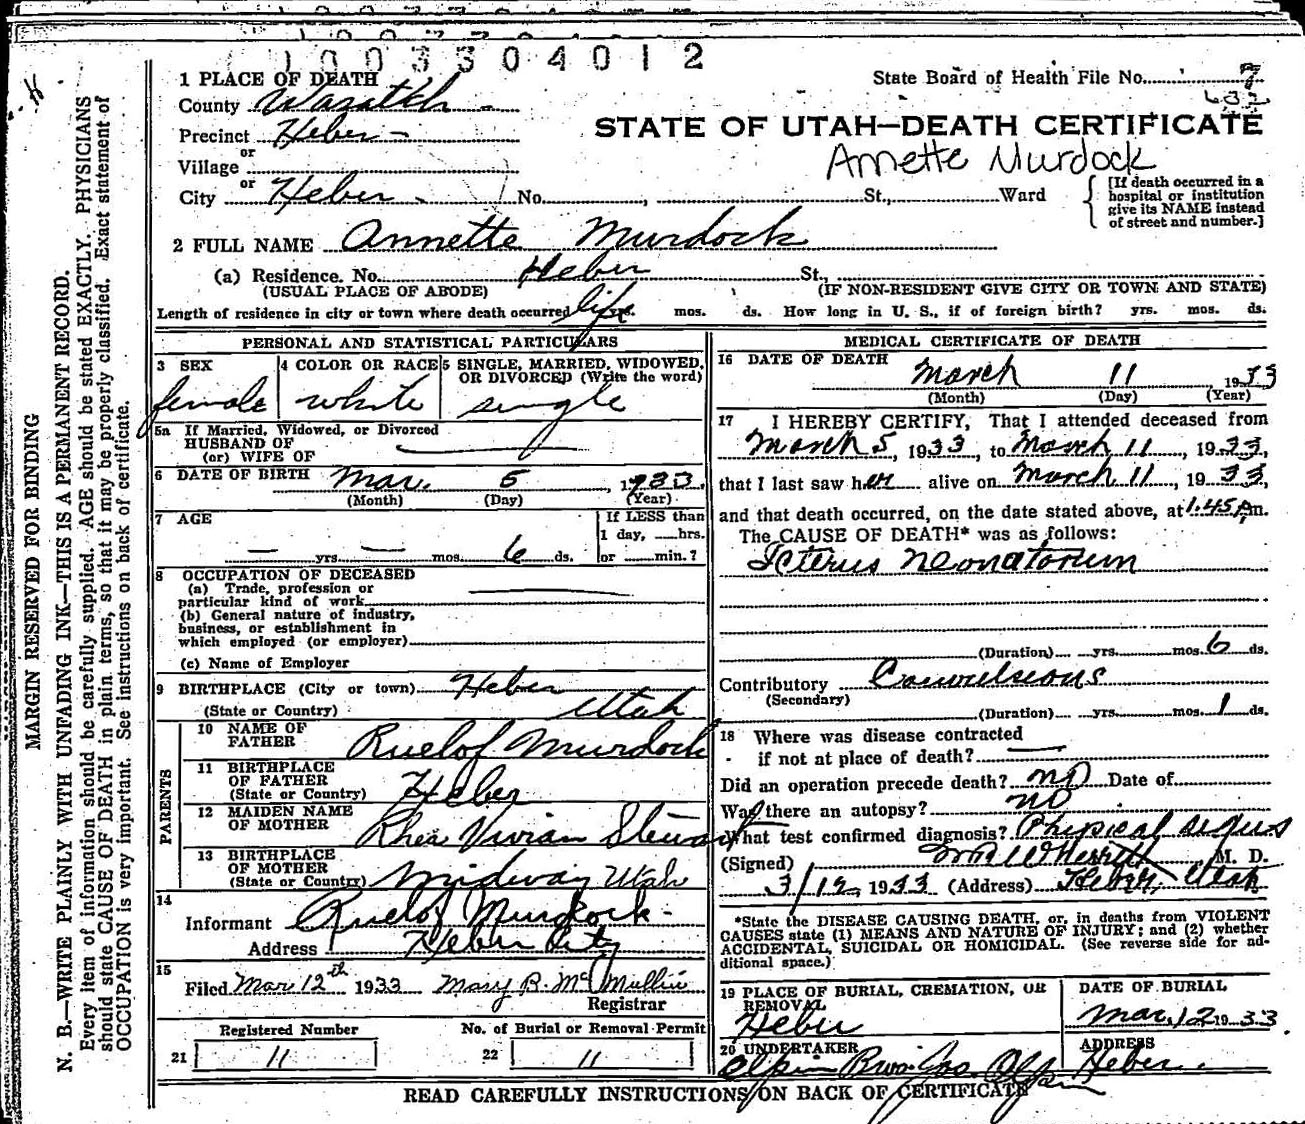 1003304012
1 PLACE OF DEATH
State Board of Health File No. 7
County Wasatch
632
Precinct Heber
STATE OF UTAH—DEATH CERTIFICATE
or
Annette Murdock
Village
or
City Heber No. , St., Ward
[If death occurred in a hospital or institution give its NAME instead of street and number.]
2 FULL NAME Annette Murdock
(a) Residence. No. Heber St.,
(USUAL PLACE OF ABODE) (IF NON-RESIDENT GIVE CITY OR TOWN AND STATE)
Length of residence in city or town where death occurred life yrs. mos. ds. How long in U. S., if of foreign birth? yrs. mos. ds.
PERSONAL AND STATISTICAL PARTICULARS
3 SEX 4 COLOR OR RACE 5 SINGLE, MARRIED, WIDOWED, OR DIVORCED (Write the word)
female white single
5a If Married, Widowed, or Divorced
HUSBAND OF
(or) WIFE OF
6 DATE OF BIRTH Mar. 5, 1933.
(Month) (Day) (Year)
7 AGE If LESS than
1 day, hrs.
— yrs. — mos. 6 ds. or min.?
8 OCCUPATION OF DECEASED
(a) Trade, profession or
particular kind of work
(b) General nature of industry,
business, or establishment in
which employed (or employer)
(c) Name of Employer
9 BIRTHPLACE (City or town) Heber
(State or Country) Utah
PARENTS
10 NAME OF
FATHER Ruelof Murdock
11 BIRTHPLACE
OF FATHER
(State or Country) Heber
12 MAIDEN NAME
OF MOTHER Rhea Vivian Stewart
13 BIRTHPLACE
OF MOTHER
(State or Country) Midway Utah
14
Informant Ruelof Murdock
Address Heber City
15
Filed Mar 12th 1933 Mary B. McMullin
Registrar
Registered Number No. of Burial or Removal Permit
21 11 22 11
MEDICAL CERTIFICATE OF DEATH
16 DATE OF DEATH
March 11 1933
(Month) (Day) (Year)
17 I HEREBY CERTIFY, That I attended deceased from
March 5, 1933, to March 11, 1933,
that I last saw her alive on March 11, 1933,
and that death occurred, on the date stated above, at 1.45 p.m.
The CAUSE OF DEATH* was as follows:
Icterus Neonatorum
(Duration) yrs. mos. 6 ds.
Contributory Convulsions
(Secondary)
(Duration) yrs. mos. 1 ds.
18 Where was disease contracted
if not at place of death?
Did an operation precede death? no Date of
Was there an autopsy? no
What test confirmed diagnosis? Physical signs
(Signed) , M. D.
3/12 1933 (Address) Heber, Utah
*State the DISEASE CAUSING DEATH, or, in deaths from VIOLENT
CAUSES state (1) MEANS AND NATURE OF INJURY; and (2) whether
ACCIDENTAL, SUICIDAL OR HOMICIDAL. (See reverse side for ad-
ditional space.)
19 PLACE OF BURIAL, CREMATION, OR
REMOVAL
Heber
DATE OF BURIAL
Mar. 12 1933.
20 UNDERTAKER
ADDRESS
Heber.
READ CAREFULLY INSTRUCTIONS ON BACK OF CERTIFICATE
MARGIN RESERVED FOR BINDING
N. B.—WRITE PLAINLY WITH UNFADING INK—THIS IS A PERMANENT RECORD.
Every item of information should be carefully supplied. AGE should be stated EXACTLY. PHYSICIANS
should state CAUSE OF DEATH in plain terms, so that it may be properly classified. Exact statement of
OCCUPATION is very important. See instructions on back of certificate.